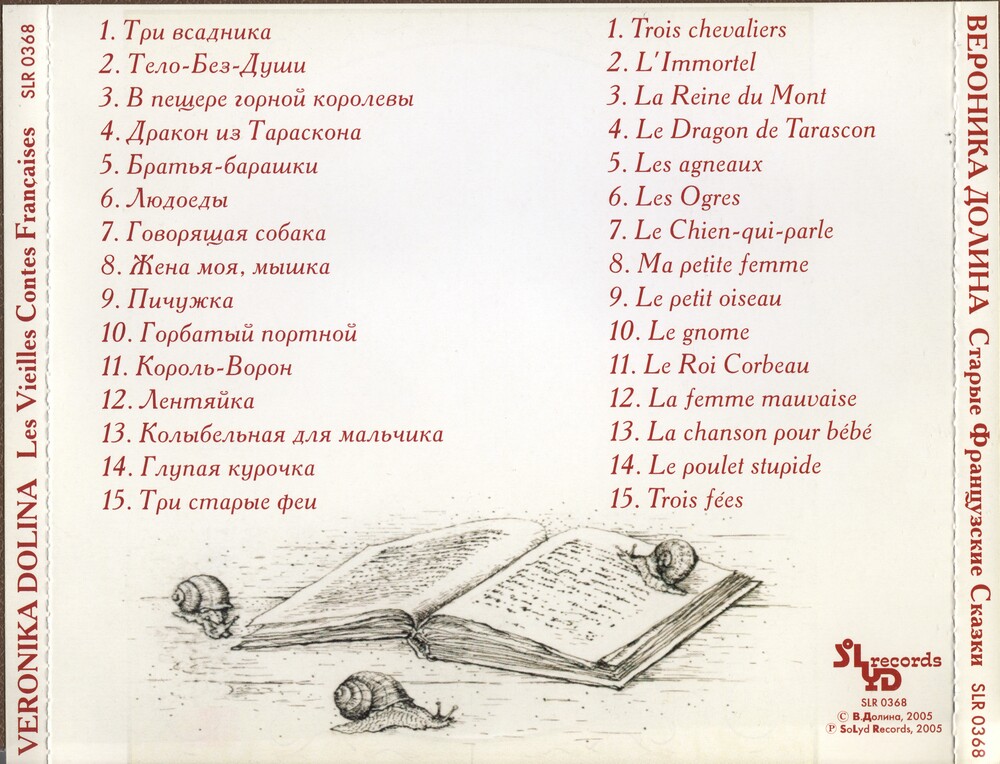 VERONIKA DOLINA Les Vieilles Contes Françaises SLR 0368
1. Три всадника
2. Тело-Без-Души
3. В пещере горной королевы
4. Дракон из Тараскона
5. Братья-барашки
6. Людоеды
7. Говорящая собака
8. Жена моя, мышка
9. Пичужка
10. Горбатый портной
11. Король-Ворон
12. Лентяйка
13. Колыбельная для мальчика
14. Глупая курочка
15. Три старые феи
1. Trois chevaliers
2. L'Immortel
3. La Reine du Mont
4. Le Dragon de Tarascon
5. Les agneaux
6. Les Ogres
7. Le Chien-qui-parle
8. Ma petite femme
9. Le petit oiseau
10. Le gnome
11. Le Roi Corbeau
12. La femme mauvaise
13. La chanson pour bébé
14. Le poulet stupide
15. Trois fées
SoLYD records
SLR 0368
© В.Долина, 2005
℗ SoLyd Records, 2005
ВЕРОНИКА ДОЛИНА Старые Французские Сказки SLR 0368